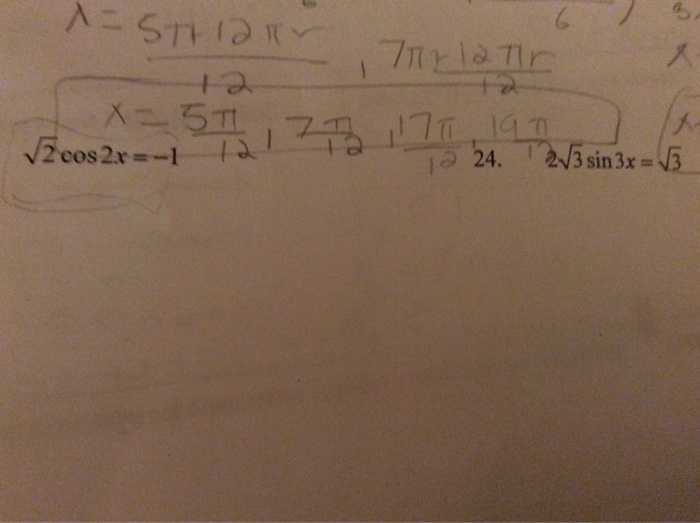 x = 5π+12πr/12 , 7π+12πr/12
x = 5π/12 , 7π/12 , 17π/12 , 19π/12
√2 cos 2x = −1
24. 2√3 sin 3x = √3